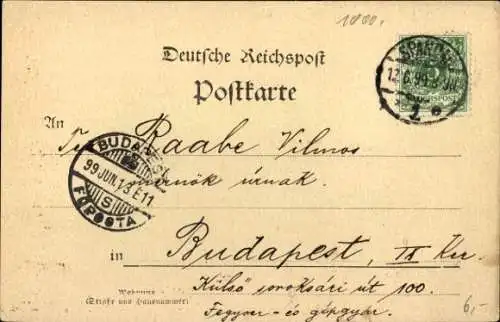 1800.
Deutsche Reichspost
Postkarte
SPANDAU
12.6.99
1 e
REICHSPOST
An
T. Raabe Vilmos
mérnök úrnak.
BUDAPEST
99 JUN. 13 E11
S
FŐPOSTA
in Budapest, IX Ker.
Wohnung
(Straße und Hausnummer)
Külső soroksári út 100.
Fegyver- és gépgyár.
6,-